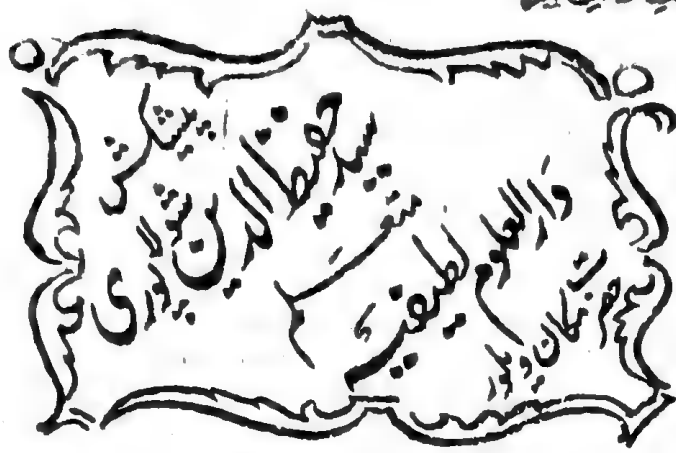 پیشکش
سید حفیظ الدین پوری
متعلم
دارالعلوم لطیفیہ
حضرت مکان ویلور